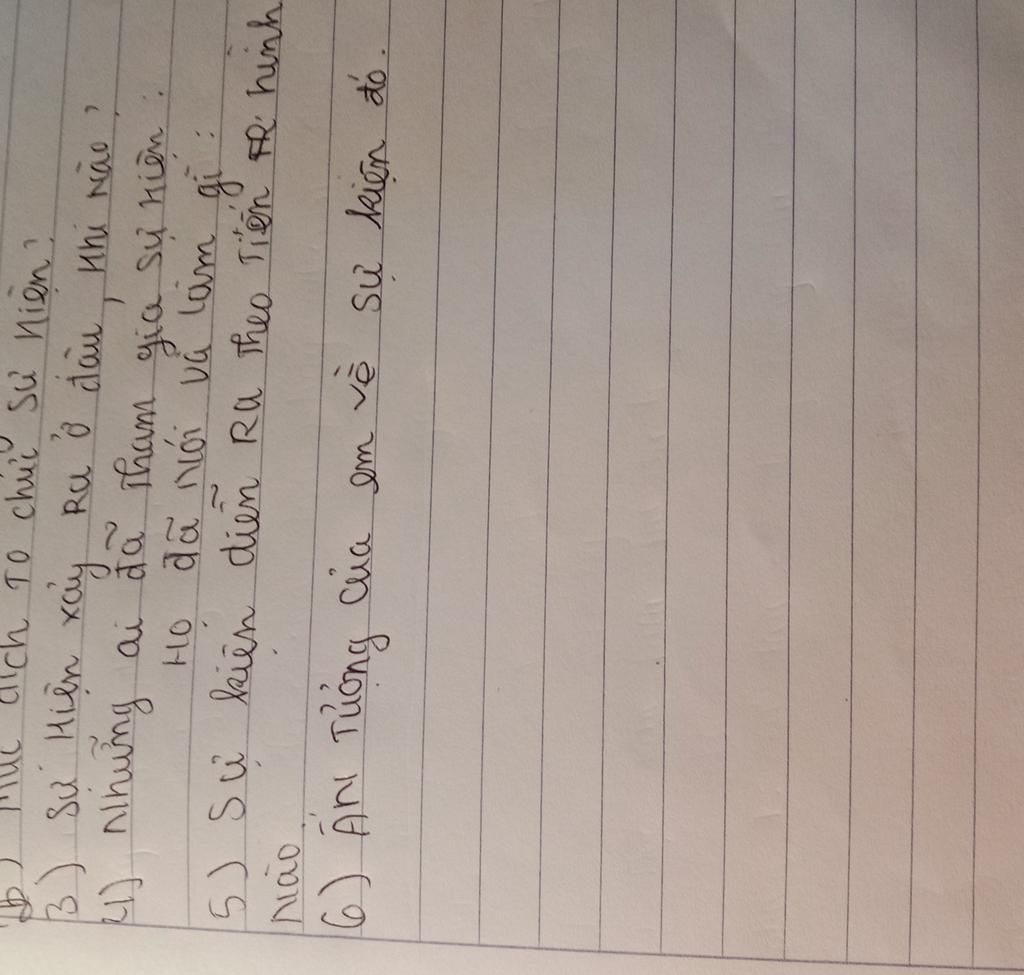 Mục đích tổ chức sự kiện?
3) Sự kiện xảy ra ở đâu, khi nào?
4) Những ai đã tham gia sự kiện?
Họ đã nói và làm gì?
5) Sự kiện diễn ra theo tiến trình
nào
6) Ấn tượng của em về sự kiện đó.